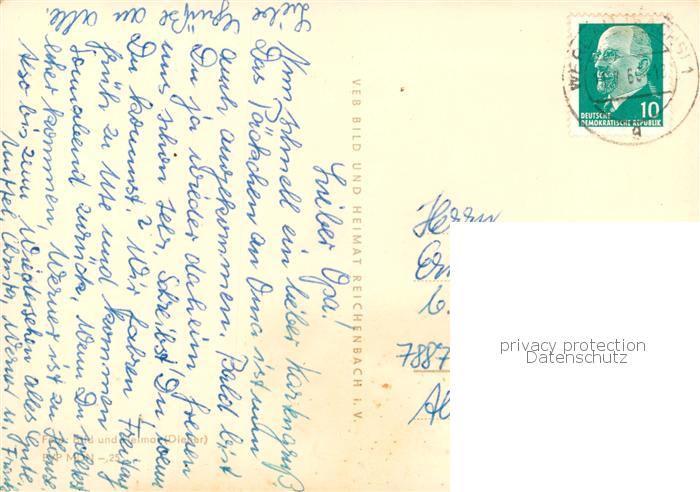 Lieber Opa!
Nun schnell ein lieber Kartengruß.
Das Päckchen an Oma ist nun
auch angekommen. Bald bist
Du ja wieder daheim, freuen
uns schon sehr. Schreibst Du wenn
Du kommst? Wir fahren Freitag
früh zu Ute und kommen
Sonnabend zurück. Wenn Du
eher kommen, Werner ist zu Hause.
Also bis zum Wiedersehen alles Gute,
Werner u.
Liebe
Grüße an
alle.
VEB BILD UND HEIMAT REICHENBACH i. V.
Foto: Bild und Heimat (Dieger)
MDN -,25
10
DEUTSCHE
DEMOKRATISCHE REPUBLIK
Herrn
7887
privacy protection
Datenschutz